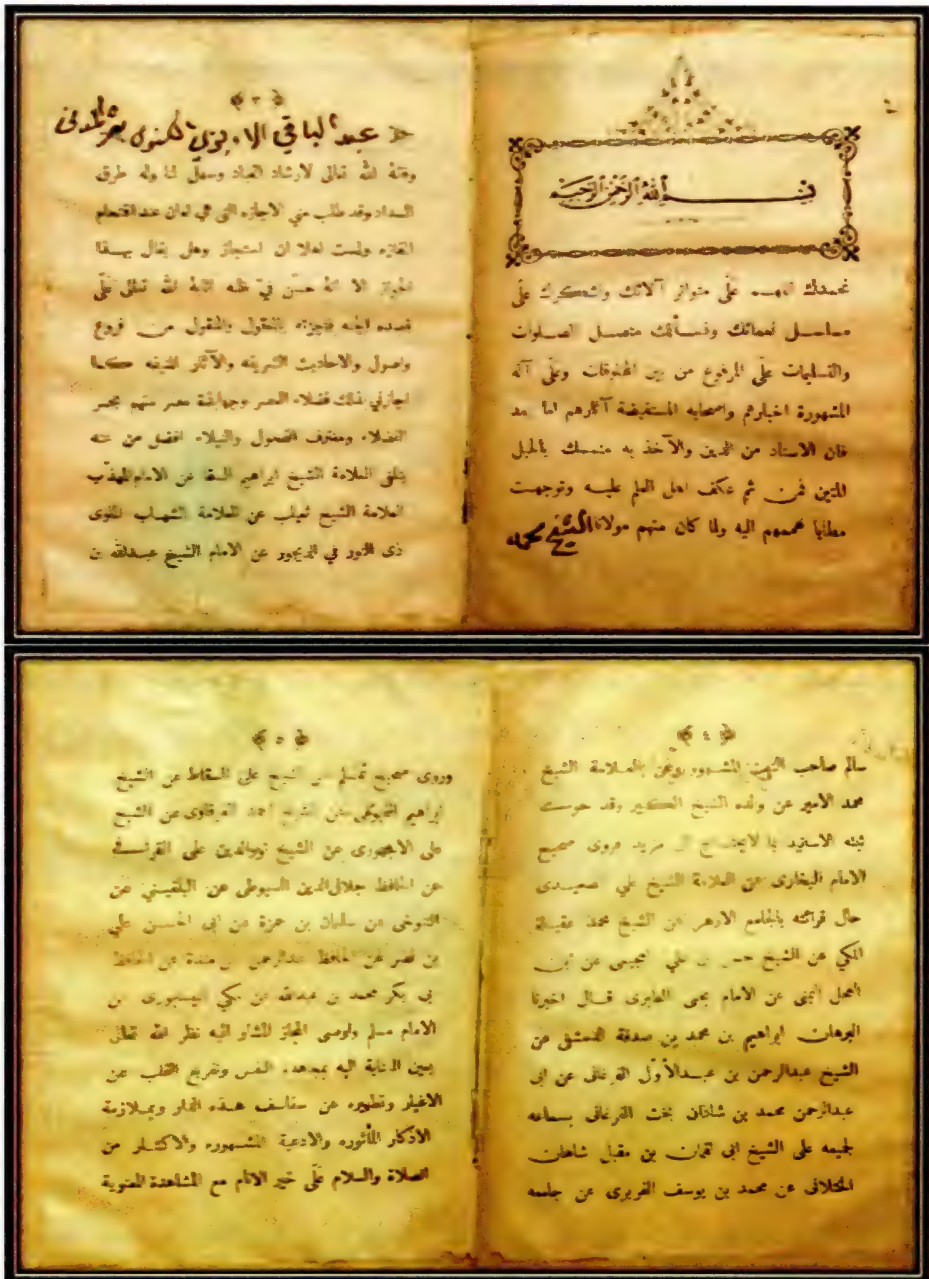 بسم الله الرحمن الرحيم
نحمدك اللهم على متواتر آلائك ونشكرك على
مسلسل نعمائك ونسألك متصل الصلوات
والتسليمات على المرفوع من بين المخلوقات وعلى آله
المشهورة اخبارهم واصحابه المستفيضة آثارهم اما بعد
فان الاسناد من الدين والآخذ به متمسك بالحبل
المتين فمن ثم عكف اهل العلم عليه وتوجهت
مطايا هممهم اليه ولما كان منهم مولانا الشيخ محمد
﴿ ٣ ﴾
عبد الباقي
وفقه الله تعالى لارشاد العباد وسهل لنا وله طرق
السداد وقد طلب مني الاجازه التي هي امان عند اقتحام
المفازه ولست اهلا ان استجاز وهل يقال بهذا
المجاز الا انه حسن في ظنه اثابه الله تعالى على
قصده الجنه فاجزته بالمعقول والمنقول من فروع
واصول والاحاديث الشريفه والآثار المنيفه كما
اجازني بذلك فضلاء العصر وجهابذة مصر منهم بحر
الفضلاء ومغترف الفحول والنبلاء افضل من عنه
يتلقى العلامة الشيخ ابراهيم السقا عن الامام المهذب
العلامة الشيخ ثعيلب عن العلامة الشهاب الملوى
ذى النور في الديجور عن الامام الشيخ عبدالله بن
﴿ ٤ ﴾
سالم صاحب الثبت المشهور وعن العلامة الشيخ
محمد الامير عن والده الشيخ الكبير وقد حوت
ثبته الاسانيد بما لايحتاج الى مزيد فروى صحيح
الامام البخارى عن العلامة الشيخ علي الصعيدى
حال قرائته بالجامع الازهر عن الشيخ محمد عقيلة
المكي عن الشيخ حسن بن علي العجيمى عن ابن
العجل اليمنى عن الامام يحيى الطبرى قال اخبرنا
البرهان ابراهيم بن محمد بن صدقة الدمشقى عن
الشيخ عبدالرحمن بن عبدالأول الفرغانى عن ابى
عبدالرحمن محمد بن شاذان بخت الفرغانى بسماعه
لجميعه على الشيخ ابى لقمان بن مقبل شاهان
الختلانى عن محمد بن يوسف الفربرى عن جامعه
﴿ ٥ ﴾
وروى صحيح مسلم عن الشيخ على السقاط عن الشيخ
ابراهيم الفيومى عن الشيخ احمد الغرقاوى عن الشيخ
على الاجهورى عن الشيخ نورالدين على القرافى
عن الحافظ جلال الدين السيوطى عن البلقيني عن
التنوخى عن سلمان بن حمزة عن ابى الحسن علي
بن نصر عن الحافظ عبدالرحمن بن مندة عن الحافظ
ابى بكر محمد بن عبدالله عن مكي النيسابورى عن
الامام مسلم واوصى المجاز المشار اليه نظر الله تعالى
بعين العناية اليه بمجاهدة النفس وتفريغ القلب عن
الاغيار وتطهيره عن سفاسف هذه الدار وبملازمة
الاذكار المأثوره والادعية المشهوره والاكثار من
الصلاة والسلام على خير الانام مع المشاهدة المعنوية